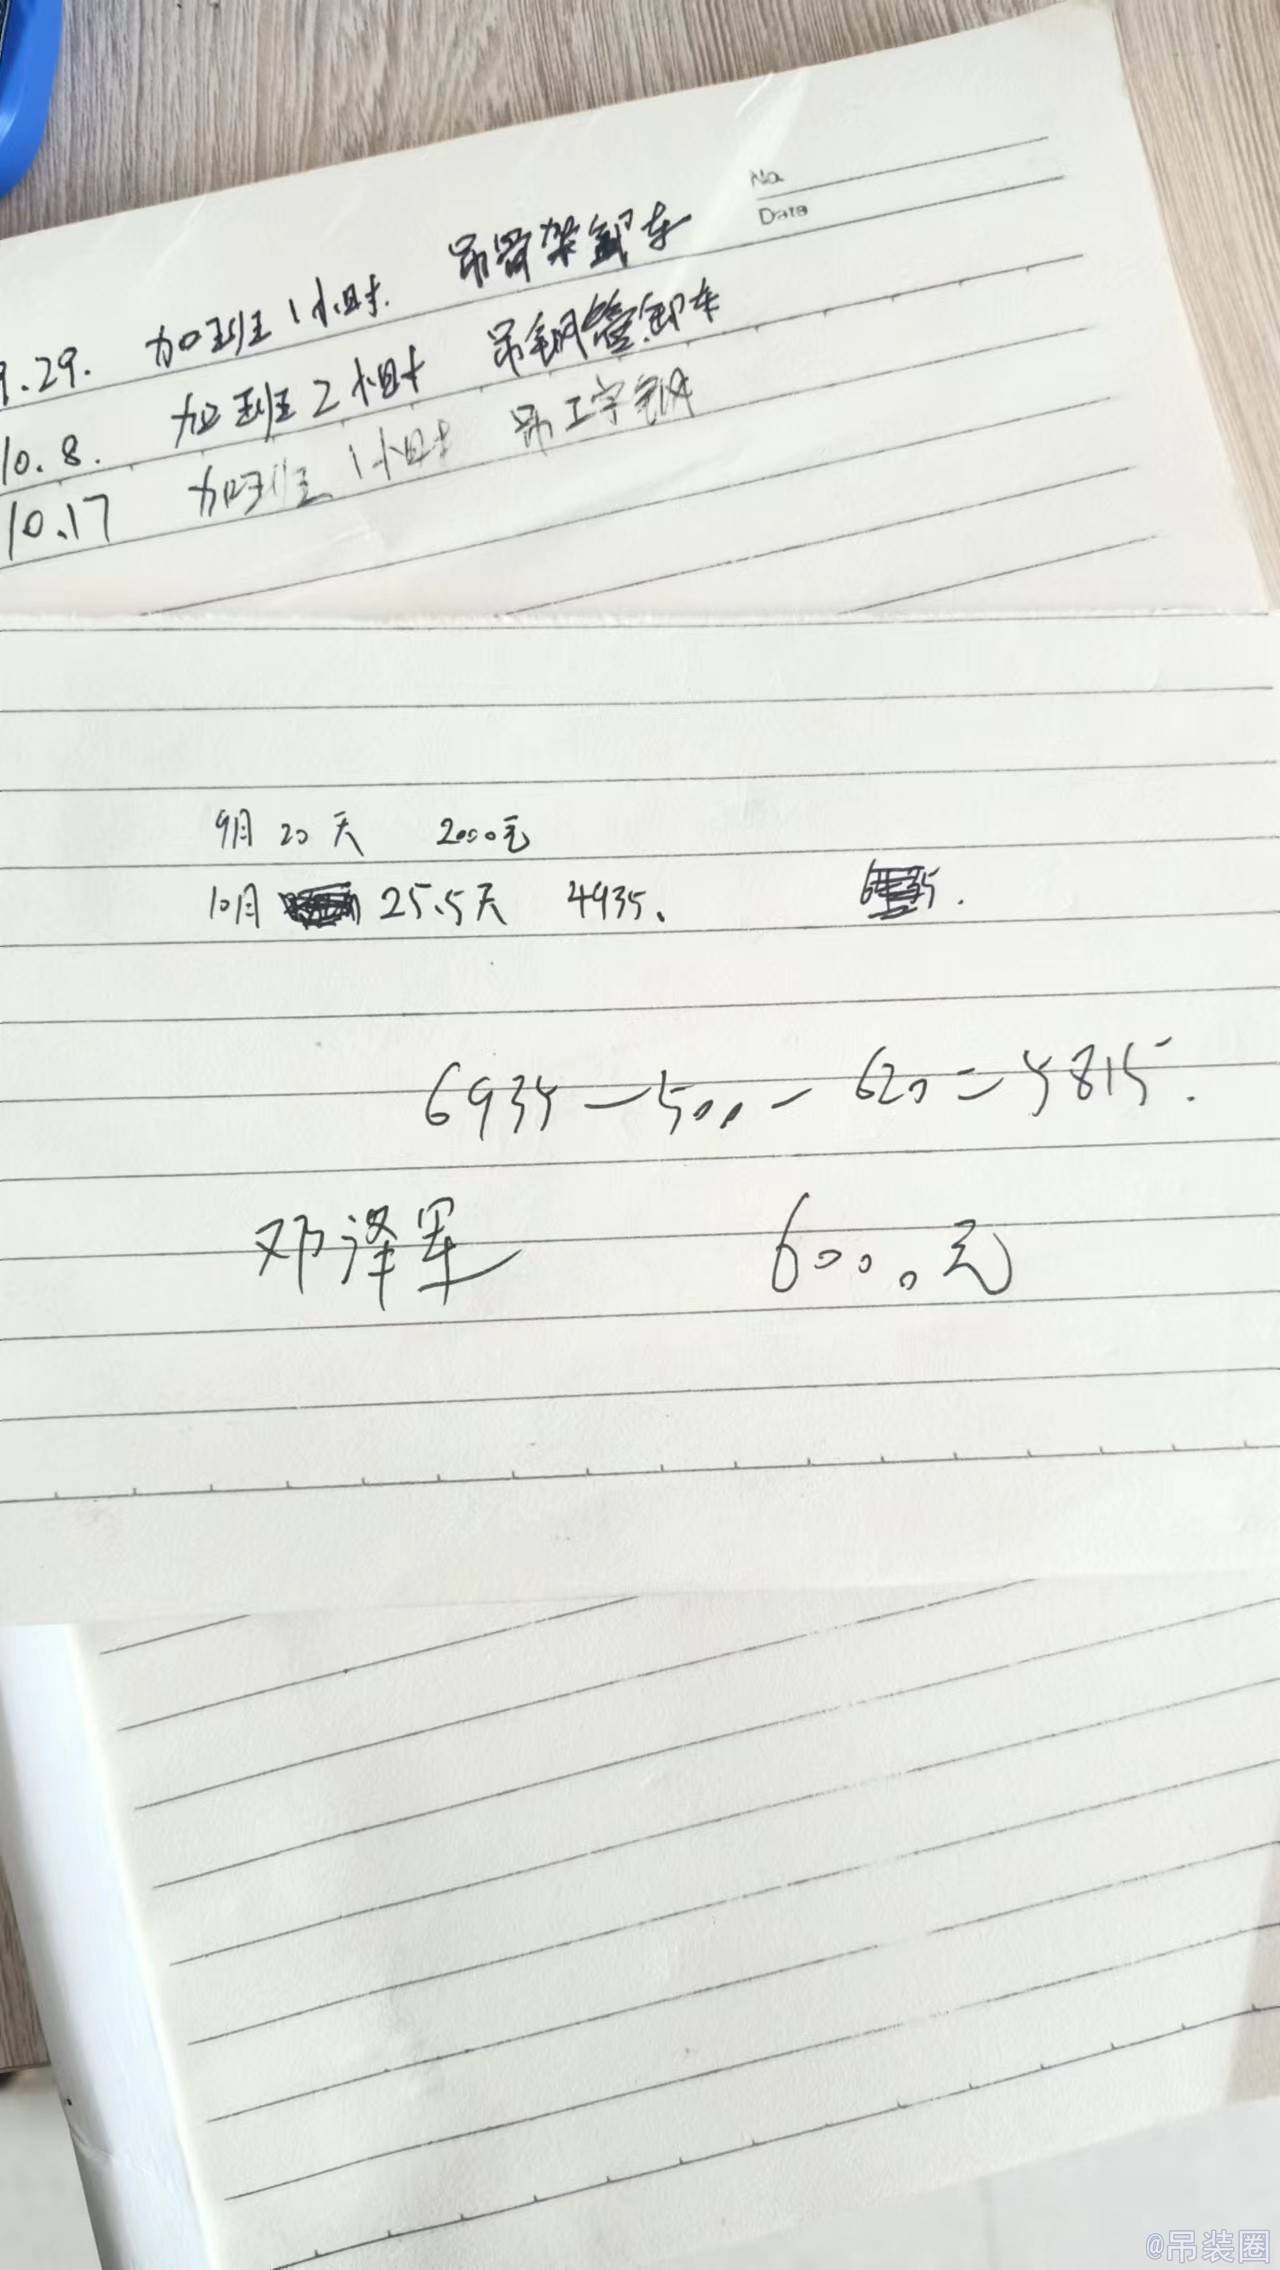 No
Date
9.29. 加班1小时. 吊骨架卸车
10.8. 加班2小时 吊钢管卸车
10.17 加班1小时 吊工字钢
9月 20天 2000元
10月 25.5天 4935.
6935-500-620=5815.
邓泽军 6000元
@吊装圈